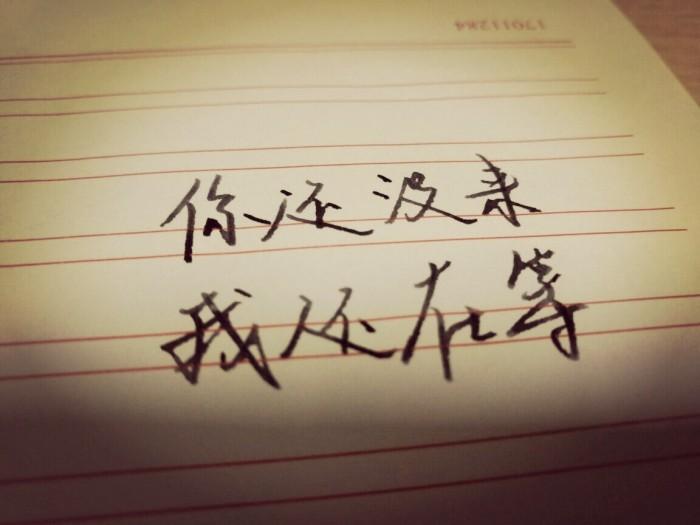 17011284
你还没来
我还在等